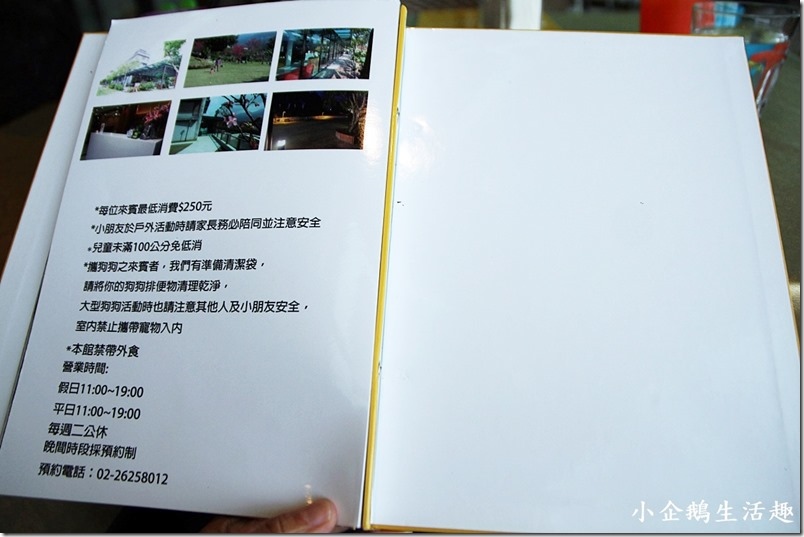 *每位來賓最低消費$250元
*小朋友於戶外活動時請家長務必陪同並注意安全
*兒童未滿100公分免低消
*攜狗狗之來賓者，我們有準備清潔袋，
請將你的狗狗排便物清理乾淨，
大型狗狗活動時也請注意其他人及小朋友安全，
室內禁止攜帶寵物入內
*本館禁帶外食
營業時間:
假日11:00~19:00
平日11:00~19:00
每週二公休
晚間時段採預約制
預約電話：02-26258012
小企鵝生活趣